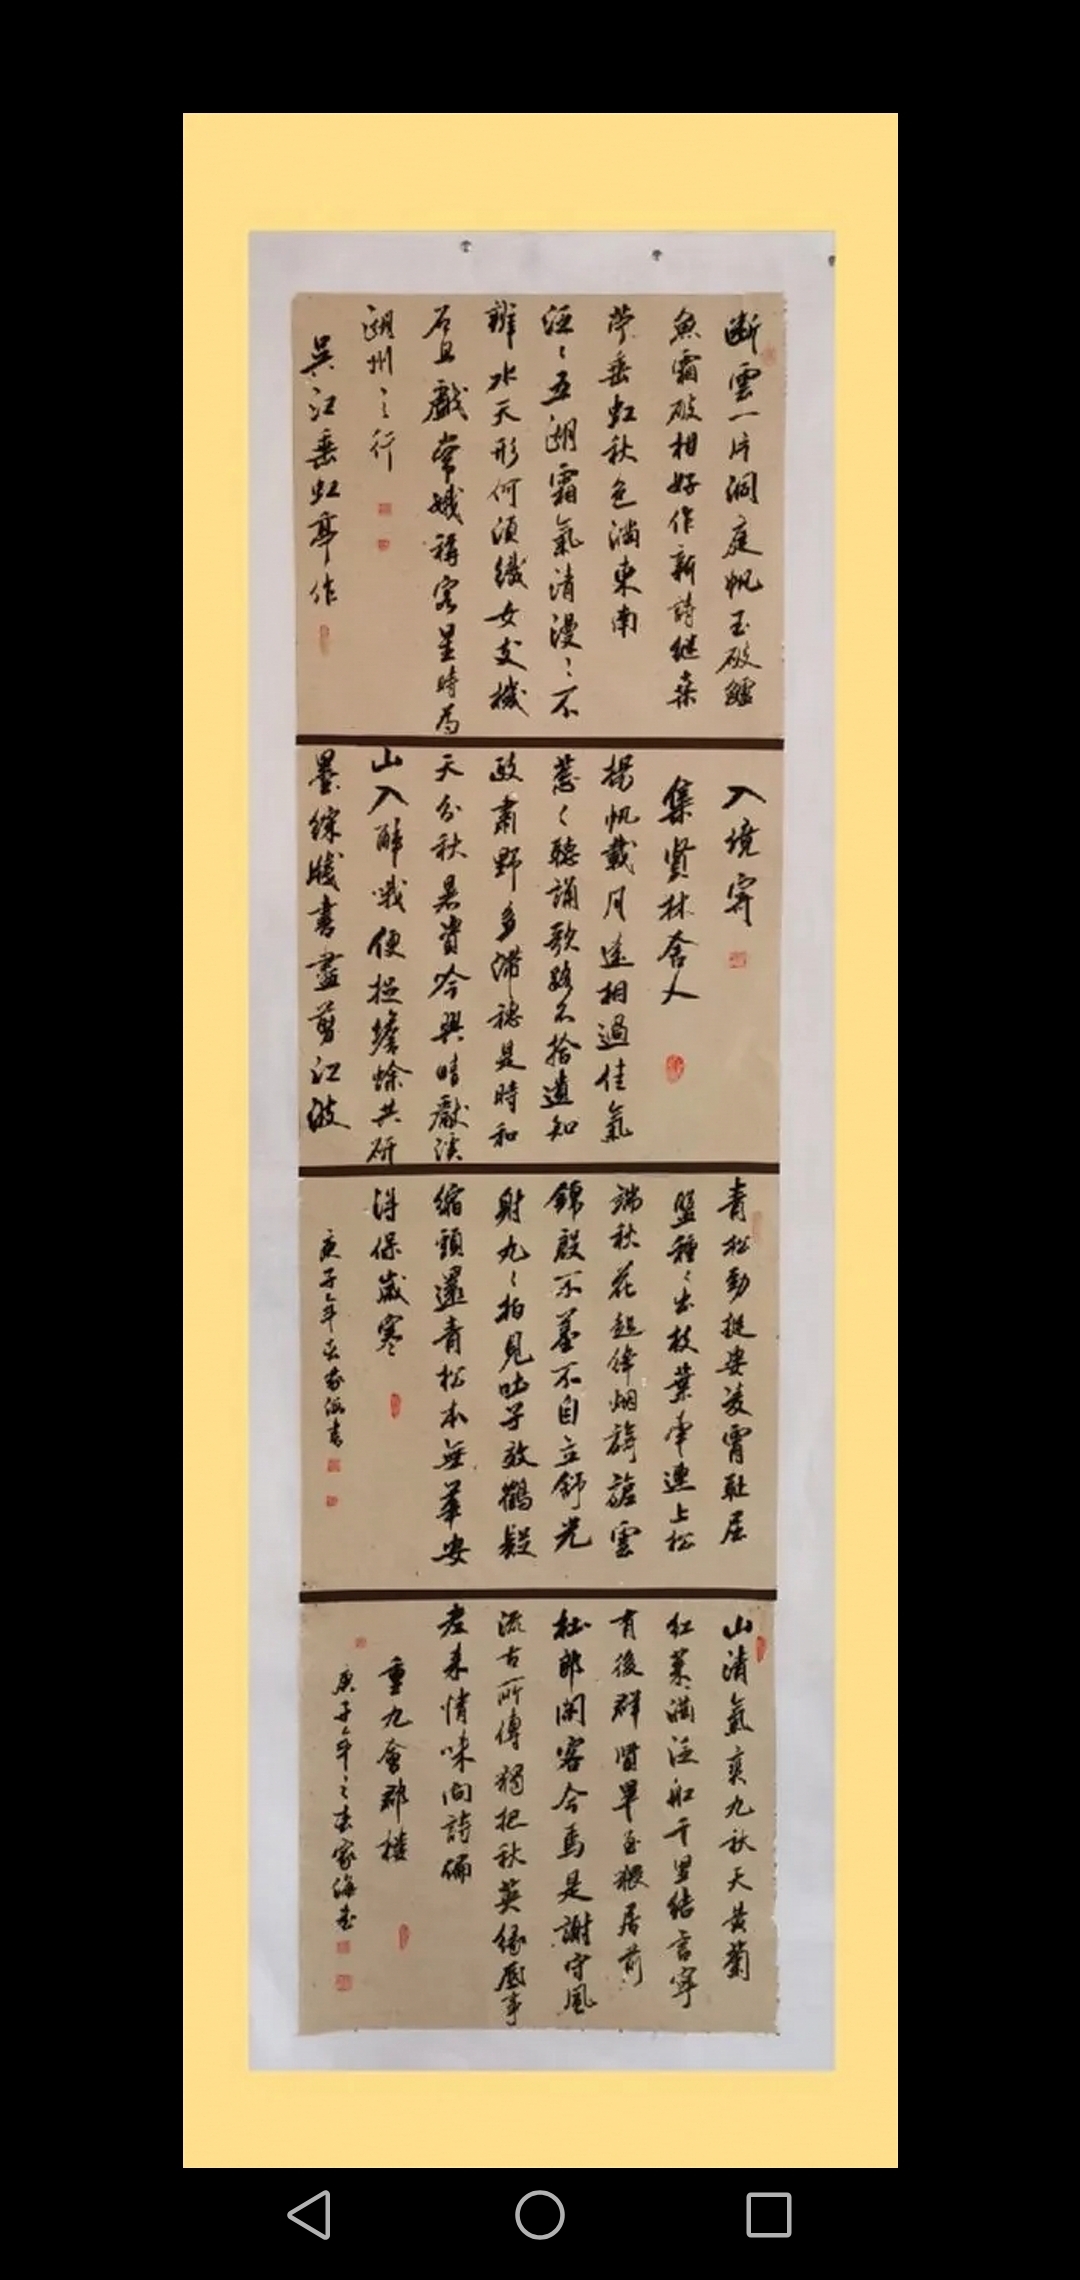 斷雲一片洞庭帆玉破鱸
魚霜破柑好作新詩繼桑
苧垂虹秋色滿東南
泛泛五湖霜氣清漫漫不
辨水天形何須織女支機
石且戲常娥稱客星時為
湖州之行
吳江垂虹亭作
入境寄
集賢林舍人
揚帆載月遠相過佳氣
蔥蔥聽誦歌路不拾遺知
政肅野多滯穗是時和
天分秋暑資吟興晴獻溪
山入醉哦便捉蟾蜍共研
墨綵牋書盡剪江波
青松勁挺姿凌霄恥屈
盤種種出枝葉牽連上松
端秋花起絳烟旖旎雲
錦殷不羞不自立舒光
射丸丸柏見吐子效鶴疑
縮頸還青松本無華安
得保歲寒
庚子年
山清氣爽九秋天黃菊
紅茱滿泛船千里結言寧
有後群賢畢至猥居前
杜郎閑客今焉是謝守風
流古所傳獨把秋英緣底事
老來情味向詩偏
重九會郡樓
庚子年